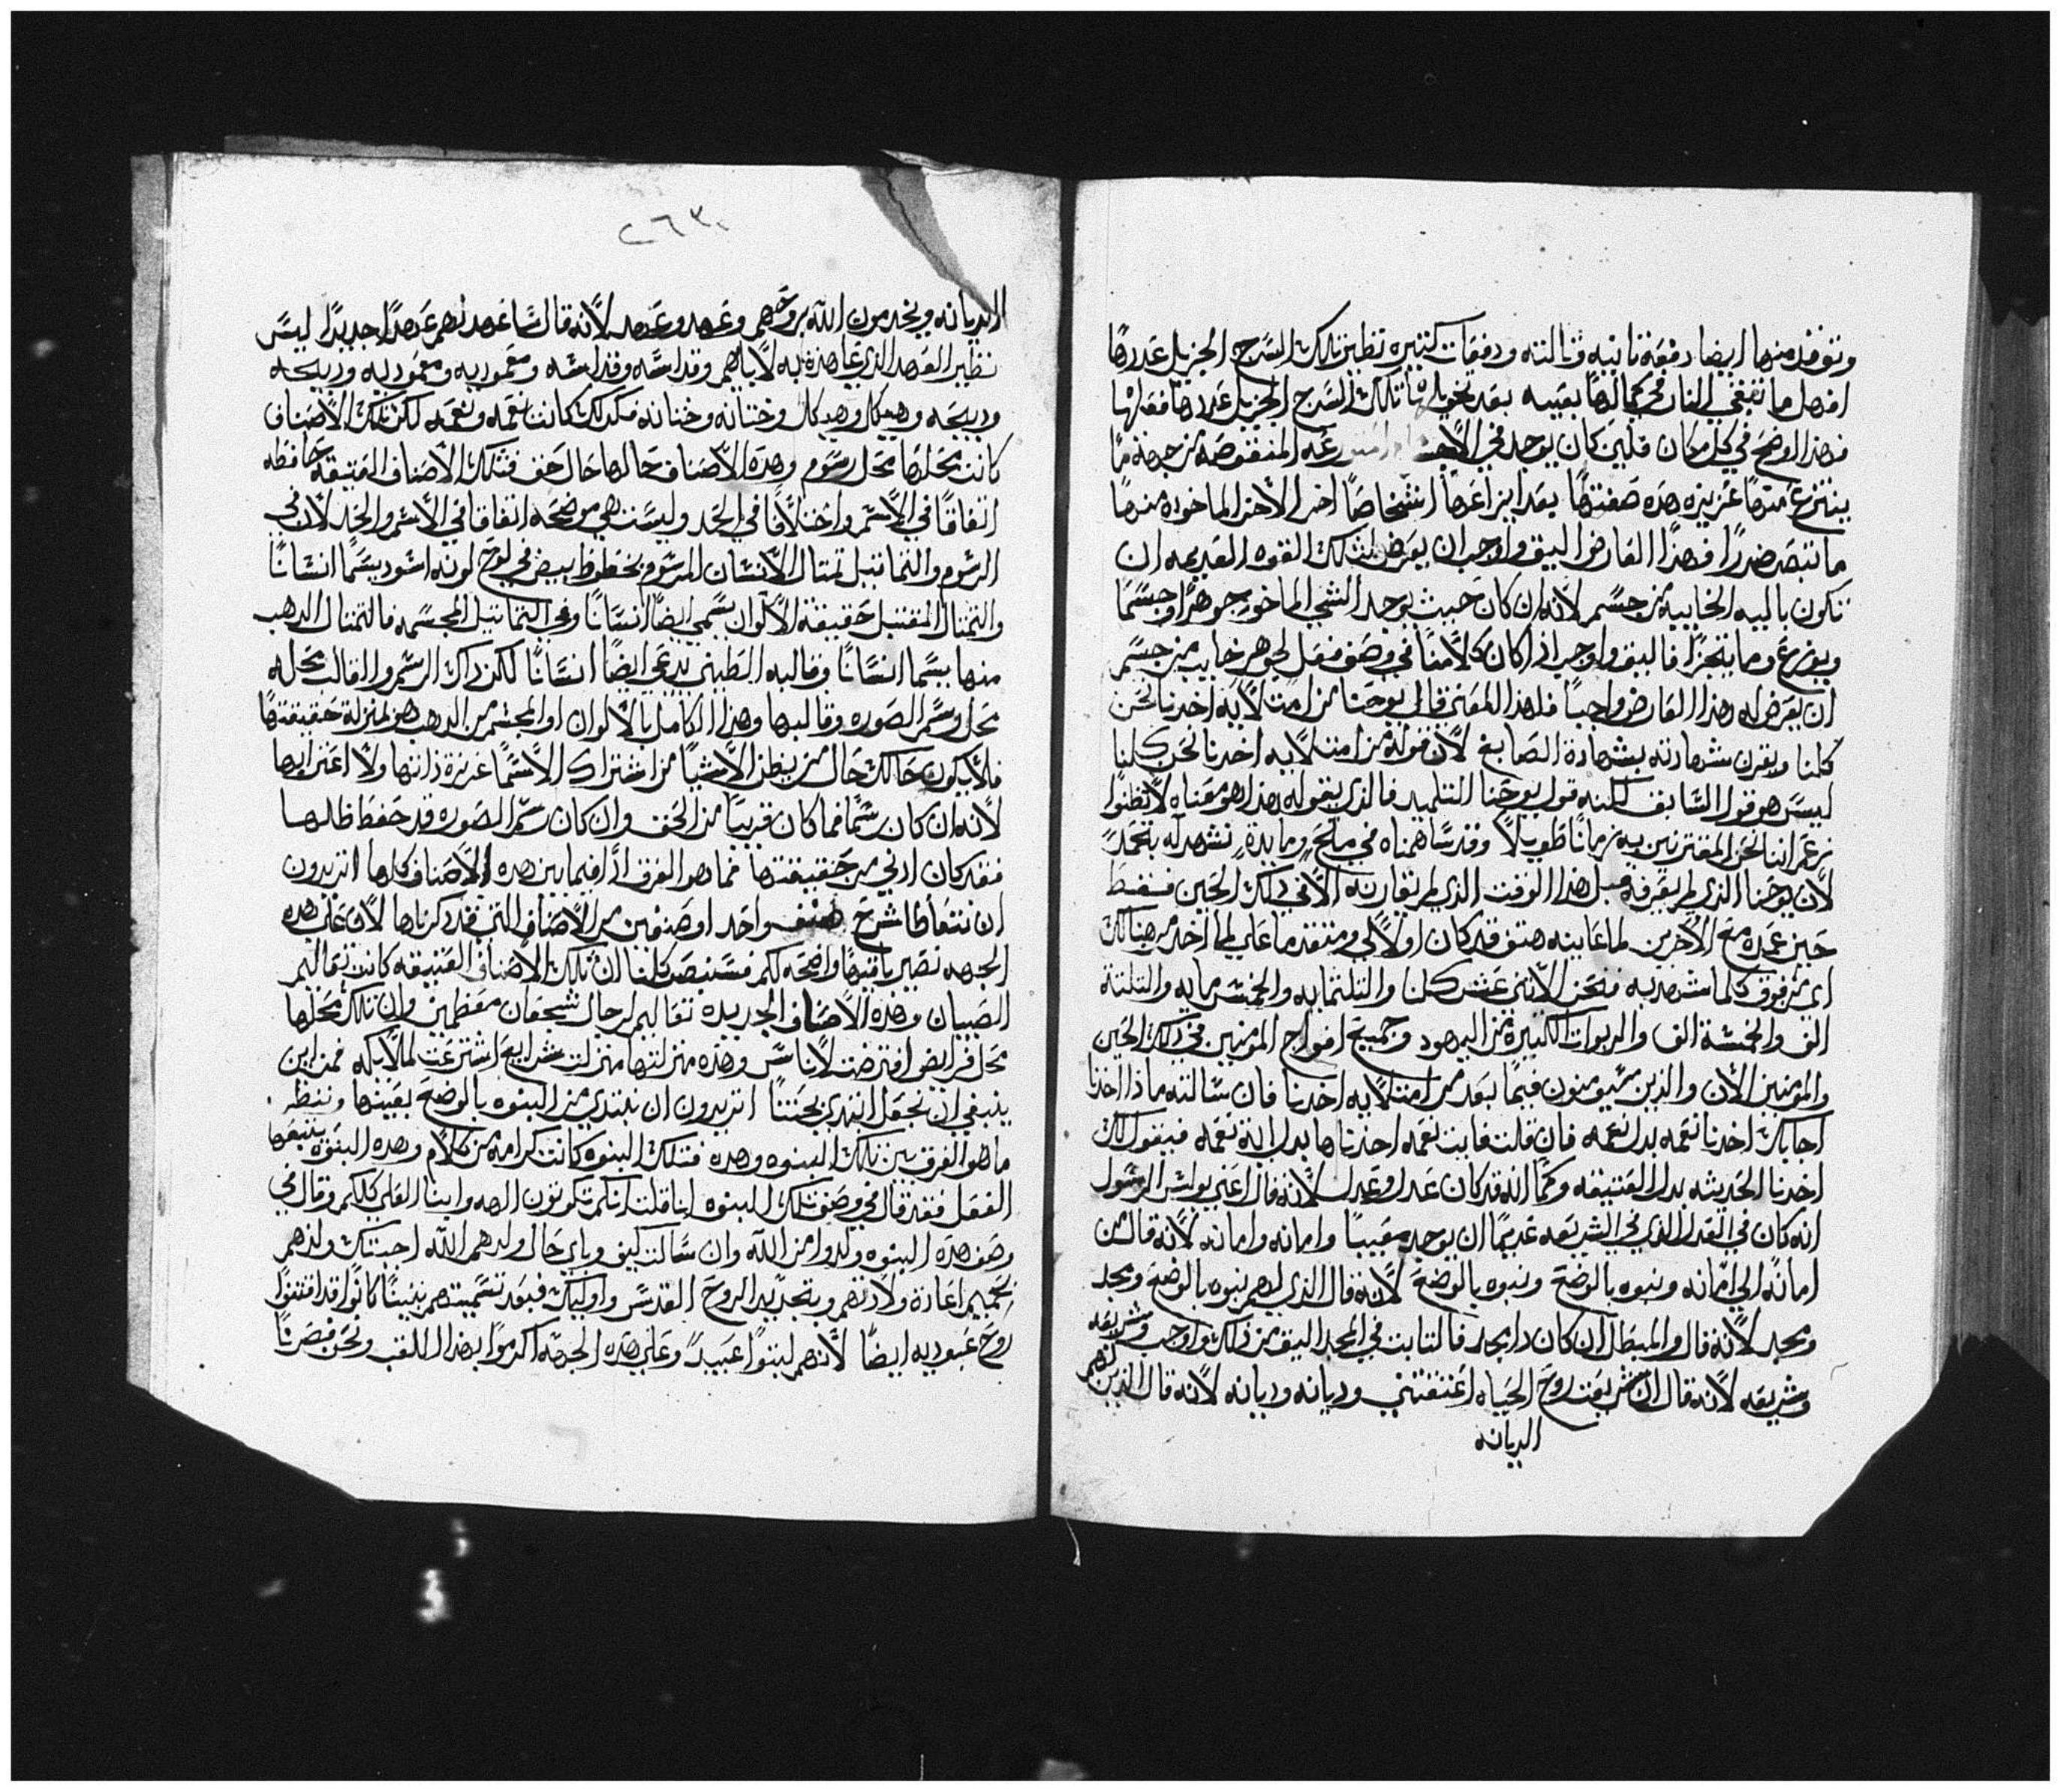 وتوقد منها ايضا دفعة ثانيه وثالثه ودفعات كثيره تظير تلك السرج الجزيل عددها
افهل ما تبقي النار في كمالها بعينه بعد تخويلها تلك السرج الجزيل عددها فعلها
فهذا الوضح في كل مكان فلين كان يوجد في الاجسام المنتقصه من جهة ما
ينتزع منها غزيزه هده صفتها بعد ايزاعها اشخاصا اخر الاخر الماخوده منها
ما تبصر ضررا فهدا العارض اليق واوجب ان يعرض لتلك القوه العديمه ان
تكون باليه الخايبه من جسم لانه ان كان حيث يوجد الشي الماخود جوهرا وجسما
ويوزع وما يتجزا فاليق واوجب اذا كان كلامنا في وصف فعل لجوهر خايب من جسم
ان يعرض له هذا العارض واجبا فلهذا المعنى قال يوحنا من امتلايه اخدنا نحن
كلنا ويقرن شهادته بشهادة الصابغ لان قوله من امتلايه اخدنا نحن كلنا
ليس هو قول السابق لكنه قول يوحنا التلميد فالذي يقوله هدا هو معناه لا تظنوا
زعم اننا نحن المقترنين به زمانا طويلا وقد ساهمناه في ملح ومايدة نشهد له بتحمد
لان يوحنا الذي لم يعرفه قبل هذا الوقت الذي لم يقارنه الا في ذلك الحين فقط
حين عمده مع الاخرين لما عاينه هتف قد كان اولا لي ومتقدما علي لما اخد من هنالك
اي من فوق كلما شهد به فنحن الاثني عشر كلنا والتلتمايه والخمسمايه والتلتة
الف والخمسة الف والربوات الكثيره من اليهود وجميع افواج المومنين في دلك الحين
والمومنين الان والذين سيومنون فيما بعد من امتلايه اخدنا فان سالته ماذا اخدنا
اجابك اخدنا نعمه بدل نعمه فان قلت فايت نعمه اخدناها بدل اية نعمه فيقول لك
اخدنا الحديثه بدل العتيقه وكما انه قد كان عدل وعدل لانه قال اعني بولس الرسول
انه كان في العدل الذي في الشريعه عديما ان يوجد معيبا وامانه وامانه لانه قال من
امانه الي امانه وبنوه بالوضع وبنوه بالوضع لانه قال الذي لهم بنوه بالوضع ومجد
ومجد لانه قال والمبطل ان كان دا مجد فالثابت في المجد اليق من ذلك واوجب وشريعه
وشريعه لانه قال ان شريعت روح الحياه اعتقتني وديانه وديانه لانه قال الذين لهم
الديانه
٢٦٣
الديانه ويخدمون الله بروحهم وعهد وعهد لانه قال ساعهد لهم عهدا جديدا ليس
نظير العهد الذي عاهدت به لاباهم وقداسه وقداسه ومعموديه ومعموديه ودبيحه
ودبيحه وهيكل وهيكل وختانه وختانه فكدلك كانت نعمه ونعمه لكن تلك الاصناف
كانت محلها محل رسوم وهده الاصناف حالها حال حق فتلك الاصناف العتيقه حافظه
اتفاقا في الاسم واختلافا في الحد وليست هي موضحه اتفاقا في الاسم والحد لان في
الرسوم والتماتيل تمتال الانسان المرسوم بخطوط بيض في لوح لونه اسود يسما انسانا
والتمتال المقتبل حقيقة الالوان يسمى ايضا انسانا وفي التماتيل المجسمه فالتمتال الدهب
منها يسما انسانا وقالبه الطيني يدعي ايضا انسانا لكن داك الرسم والقالب محله
محل رسم الصوره وقالبها وهذا الكامل بالالوان او المجسم من الدهب هو لمنزلة حقيقتها
فلا يكون حالك حال من يظن الاشيا من اشتراك الاسما غريزة ذاتها ولا اغترابها
لانه ان كان رسما فما كان قريبا من الحق وان كان رسم الصوره قد حفظ ظلها
فقد كان ادني من حقيقتها فما هو الفرق ادا فيما بين هده الاصناف كلها اتريدون
ان نتعاطا شرح صنف واحد او صنفين من الاصناف التي قد دكرناها لان على هده
الجهه تصير باقيها واضحه لكم فسنبصر كلنا ان تلك الاصناف العتيقه كانت تعاليم
الصبيان وهذه الاصناف الجديده تعاليم لرجال شجعان معظمين وان تلك محلها
محل فرايض افترضت لاناس وهذه منزلتها منزلت شرايع اشترعت لملايكه فمن اين
ينبغي ان نجعل ابتدي بحثنا اتريدون ان نبتدي من البنوه بالوضع بعينها وننظر
ما هو الفرق بين تلك البنوه وهده فتلك البنوه كانت كرامه من كلام وهده البنوه يتبعها
الفعل فقد قال في وصف تلك البنوه انا قلت انكم تكونون الهه وابنا العلي كلكم وقال في
وصف هده البنوه ولدوا من الله وان سالت كيف وباي حال ولدهم الله اجبتك ولدهم
بحميم اعادة ولادتهم وبتجديد الروح القدس واوليك فبعد تسميتهم بنينا كانوا قد اقتنوا
روح عبوديه ايضا لانهم لبتوا عبيدا وعلى هده الجهه اكرموا بهذا اللقب ونحن فصرنا